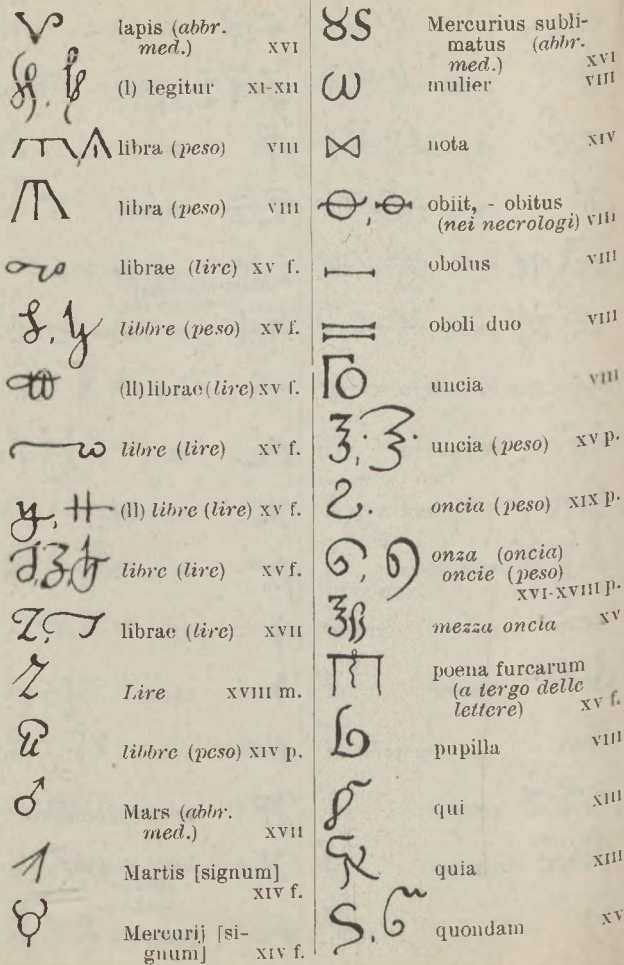 lapis (abbr.
med.) XVI
(l) legitur XI-XII
libra (peso) VIII
libra (peso) VIII
librae (lire) XV f.
libbre (peso) XV f.
(ll) librae (lire) XV f.
libre (lire) XV f.
(ll) libre (lire) XV f.
libre (lire) XV f.
librae (lire) XVII
Lire XVIII m.
libbre (peso) XIV p.
Mars (abbr.
med.) XVII
Martis [signum]
XIV f.
Mercurij [si-
gnum] XIV f.
Mercurius subli-
matus (abbr.
med.) XVI
mulier VIII
nota XIV
obiit, - obitus
(nei necrologi) VIII
obolus VIII
oboli duo VIII
uncia VIII
uncia (peso) XV p.
oncia (peso) XIX p.
onza (oncia)
oncie (peso)
XVI-XVIII p.
mezza oncia XV
poena furcarum
(a tergo delle
lettere) XV f.
pupilla VIII
qui XIII
quia XIII
quondam XV